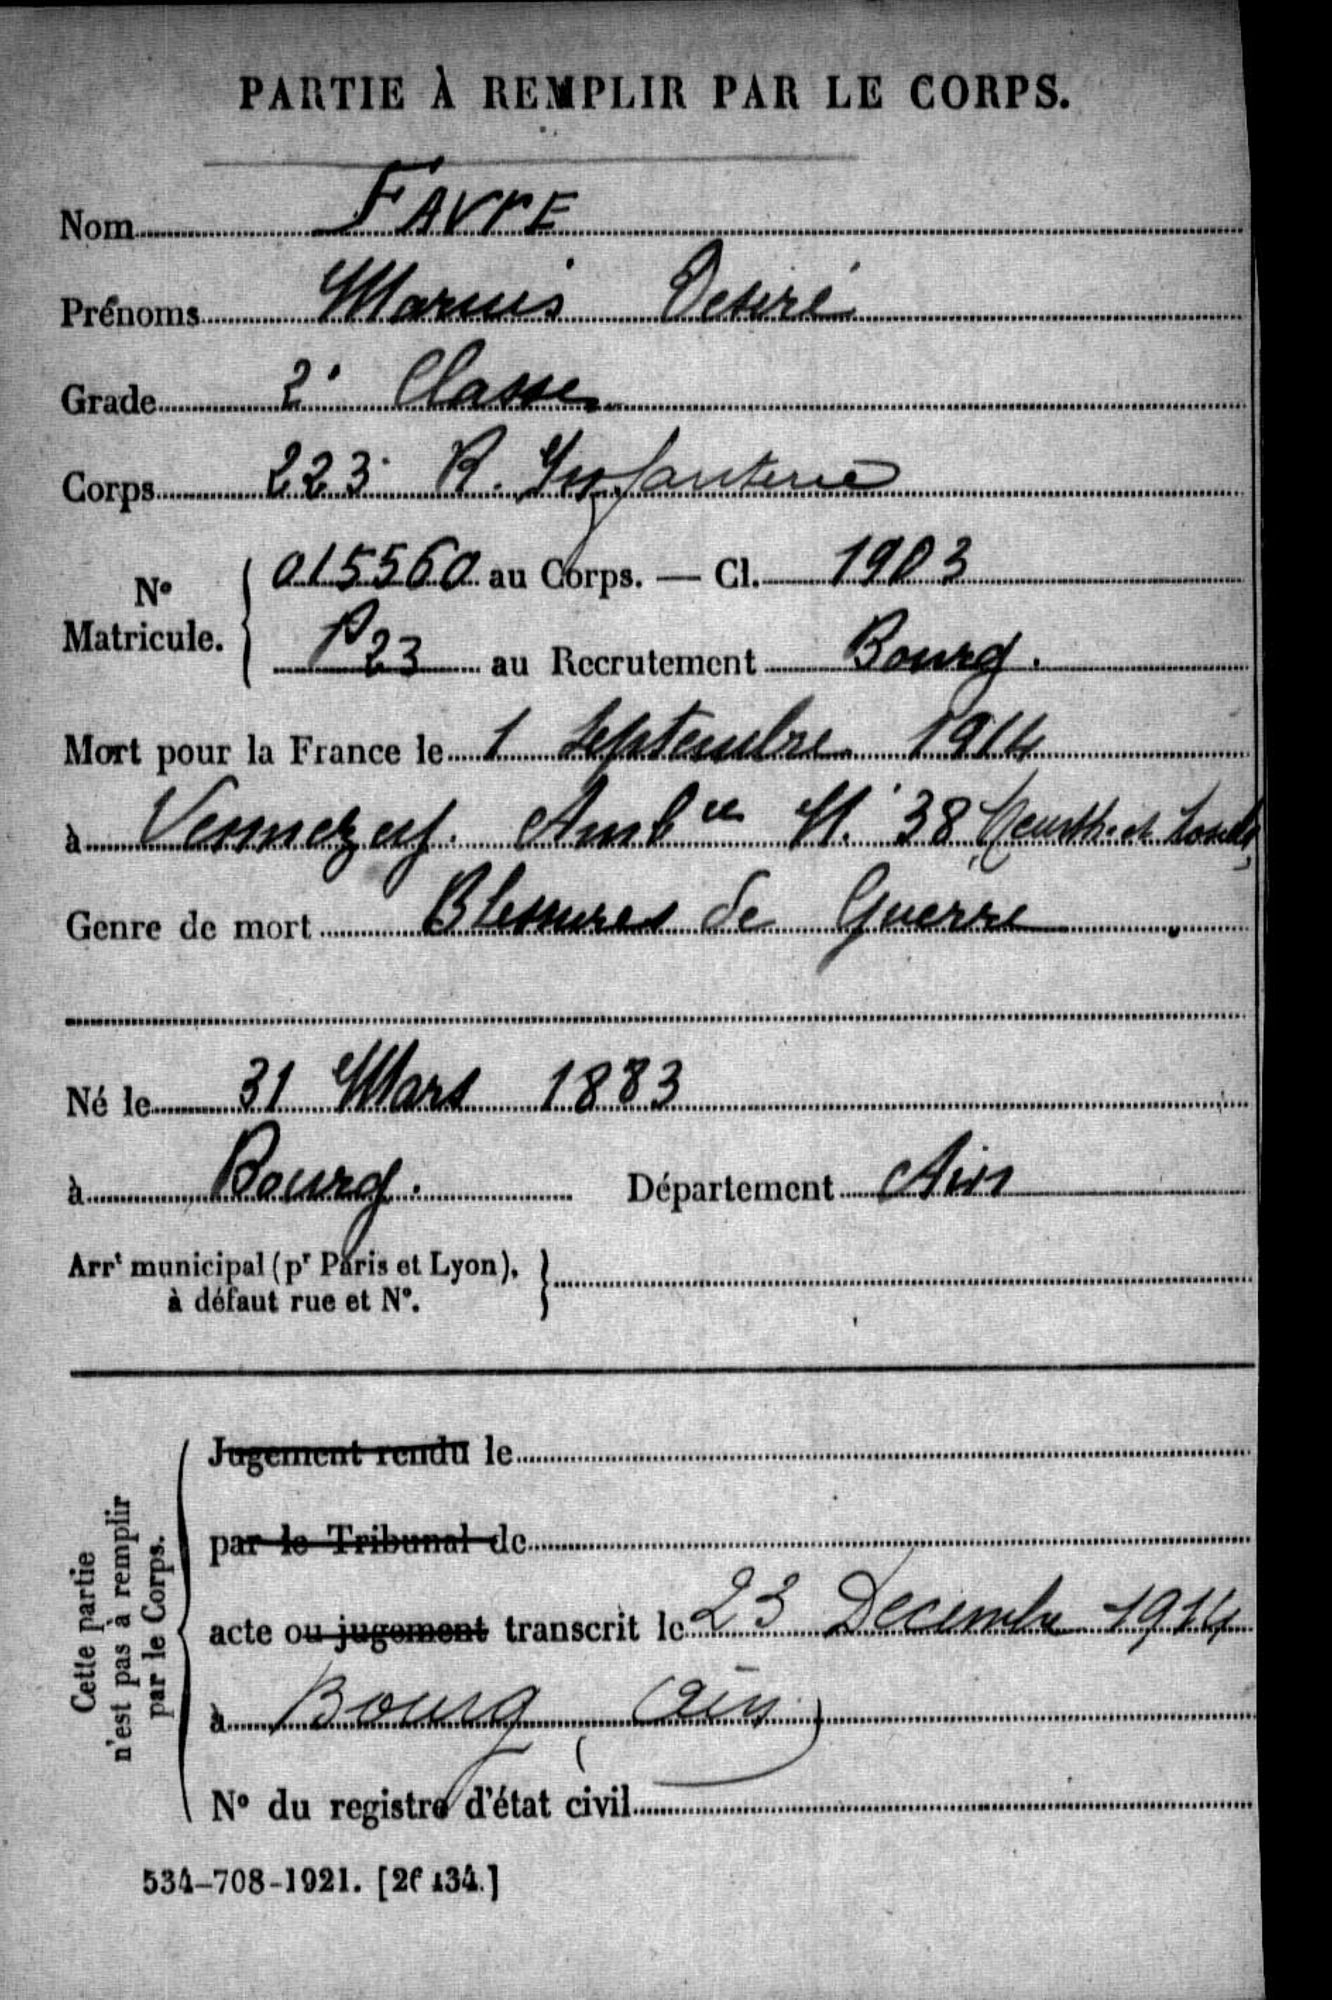 PARTIE À REMPLIR PAR LE CORPS.
Nom FAVRE
Prénoms Marius Desiré
Grade 2e Classe
Corps 223e R. Infanterie
015560 au Corps. — Cl. 1903
No Matricule.
P23 au Recrutement Bourg.
Mort pour la France le 1 Septembre 1914
à Vennezey. Ambce N° 38 Meurthe et Moselle
Genre de mort Blessures de Guerre
Né le 31 Mars 1883
à Bourg. Département Ain
Arrt municipal (pr Paris et Lyon),
à défaut rue et N°.
Cette partie
n'est pas à remplir
par le Corps.
Jugement rendu le
par le Tribunal de
acte ou jugement transcrit le 23 Decembre 1914
à Bourg (Ain)
N° du registre d'état civil
534-708-1921. [26434.]